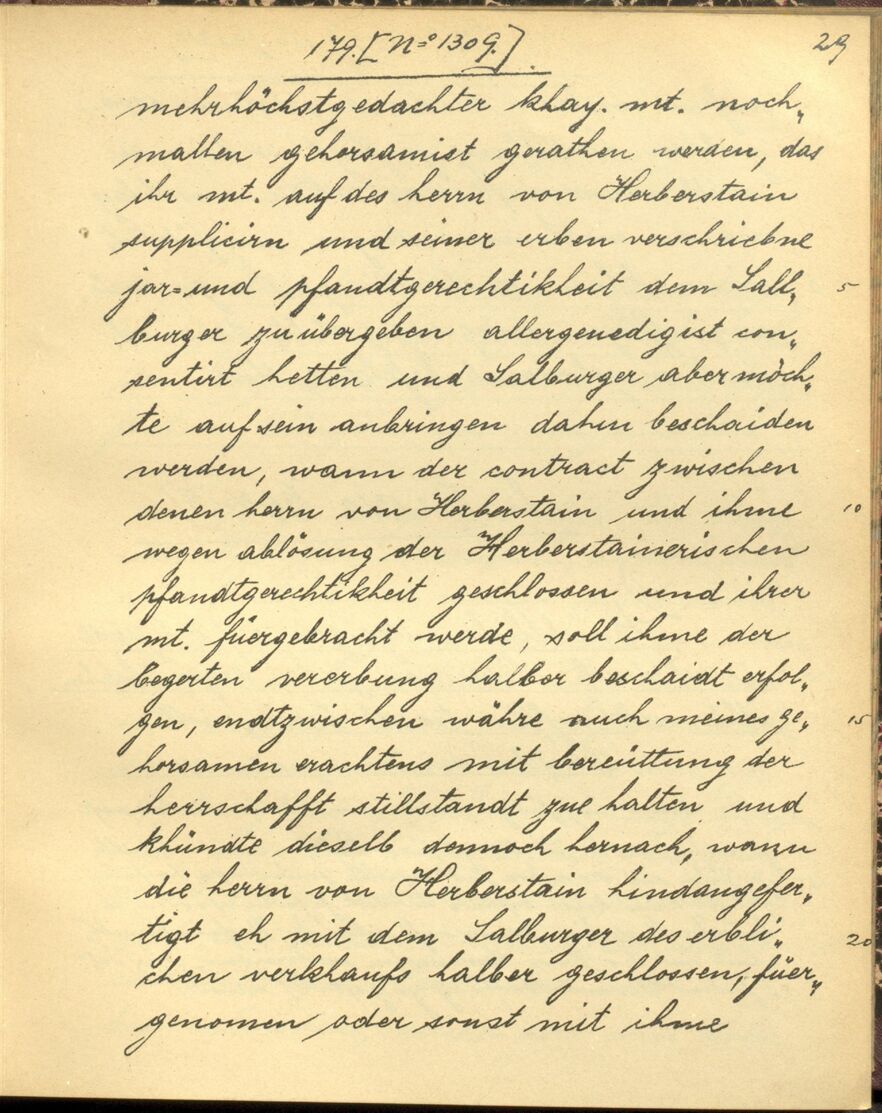 179. [N=o 1309.]
29
mehrhöchstgedachter khay. mt. noch„
mallen gehorsamist gerathen werden, das
ihr mt. auf des herrn von Herberstain
supplicirn und seiner erben verschriebne
jar= und pfandtgerechtikheit dem Sall„ 5
burger zu übergeben allergenedigist con„
sentirt hetten und Salburger aber möch„
te auf sein anbringen dahin beschaiden
werden, wann der contract zwischen
denen herrn von Herberstain und ihme 10
wegen ablösung der Herberstainerischen
pfandtgerechtikheit geschlossen und ihrer
mt. füergebracht werde, soll ihme der
begerten vererbung halber beschaidt erfol„
gen, endtzwischen währe auch meines ge„ 15
horsamen erachtens mit bereüttung der
herrschafft stillstandt zue halten und
khündte dieselb dennoch hernach, wann
die herrn von Herberstain hindangefer„
tigt eh mit dem Salburger des erbli„ 20
chen verkhaufs halber geschlossen, füer„
genomen oder sonst mit ihme